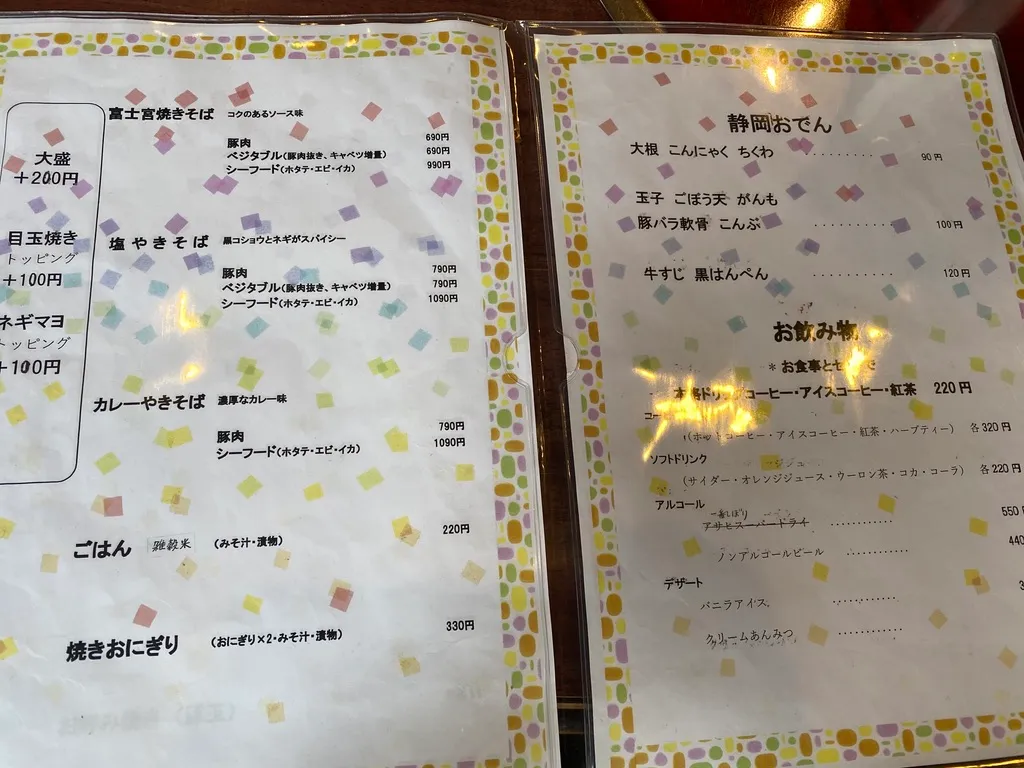 大盛
+200円
目玉焼き
トッピング
+100円
ネギマヨ
トッピング
+100円
富士宮焼きそば コクのあるソース味
豚肉 690円
ベジタブル(豚肉抜き、キャベツ増量) 690円
シーフード(ホタテ・エビ・イカ) 990円
塩やきそば 黒コショウとネギがスパイシー
豚肉 790円
ベジタブル(豚肉抜き、キャベツ増量) 790円
シーフード(ホタテ・エビ・イカ) 1090円
カレーやきそば 濃厚なカレー味
豚肉 790円
シーフード(ホタテ・エビ・イカ) 1090円
ごはん 雑穀米 (みそ汁・漬物) 220円
焼きおにぎり (おにぎり×2・みそ汁・漬物) 330円
静岡おでん
大根 こんにゃく ちくわ ・・・・・・・・ 90円
玉子 ごぼう天 がんも
豚バラ軟骨 こんぶ ・・・・・・・・・ 100円
牛すじ 黒はんぺん ・・・・・・・・・ 120円
お飲み物
*お食事とセ で
本格ドリップコーヒー・アイスコーヒー・紅茶 220円
(ホットコーヒー・アイスコーヒー・紅茶・ハーブティー) 各320円
ソフトドリンク
(サイダー・オレンジジュース・ウーロン茶・コカ・コーラ) 各220円
アルコール
一番しぼり
アサヒスーパードライ ・・・・・・・・・ 550
ノンアルコールビール ・・・・・・・・・ 440
デザート
バニラアイス ・・・・・・・・・・
クリームあんみつ ・・・・・・・・・・